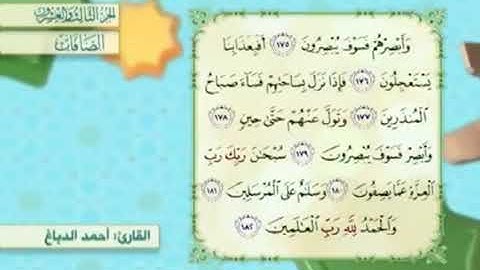 الجزء الثالث والعشرون
الصافات
وَأَبْصِرْهُمْ فَسَوْفَ يُبْصِرُونَ ١٧٥ أَفَبِعَذَابِنَا
يَسْتَعْجِلُونَ ١٧٦ فَإِذَا نَزَلَ بِسَاحَتِهِمْ فَسَآءَ صَبَاحُ
الْمُنذَرِينَ ١٧٧ وَتَوَلَّ عَنْهُمْ حَتَّىٰ حِينٍ ١٧٨
وَأَبْصِرْ فَسَوْفَ يُبْصِرُونَ ١٧٩ سُبْحَٰنَ رَبِّكَ رَبِّ
الْعِزَّةِ عَمَّا يَصِفُونَ ١٨٠ وَسَلَٰمٌ عَلَى الْمُرْسَلِينَ ١٨١
وَالْحَمْدُ لِلَّهِ رَبِّ الْعَٰلَمِينَ ١٨٢
القارئ: أحمد الدباغ